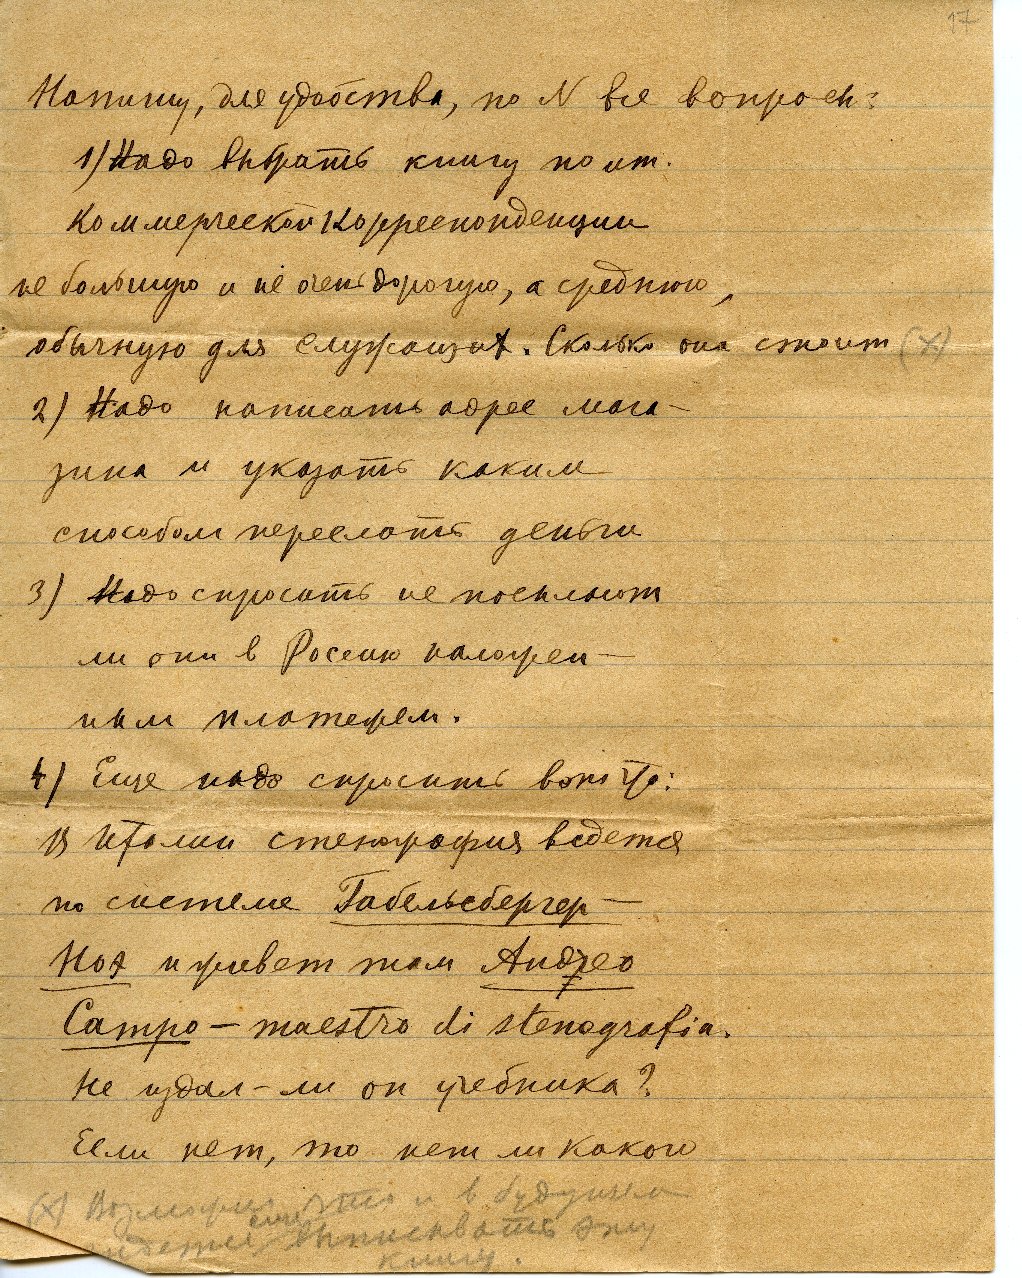 17
Напишу, для удобства, по N все вопросы:
1) Надо выбрать книгу по ит.
Коммерческой Корреспонденции
не большую и не очень дорогую, а среднюю,
обычную для служащих. Сколько она стоит (x)
2) Надо написать адрес мага-
зина и указать каким
способом переслать деньги
3) Надо спросить не посылают
ли они в Россию наложен-
ным платежем.
4) Еще надо спросить вот что:
В Италии стенография ведется
по системе Габельсбергер-
Ноэ и живет там Андрео
Campo – maestro di stenografia.
Не издал-ли он учебника?
Если нет, то нет ли какого
(x) Возможно что и в будущем
еще
выписывать эту
книгу.